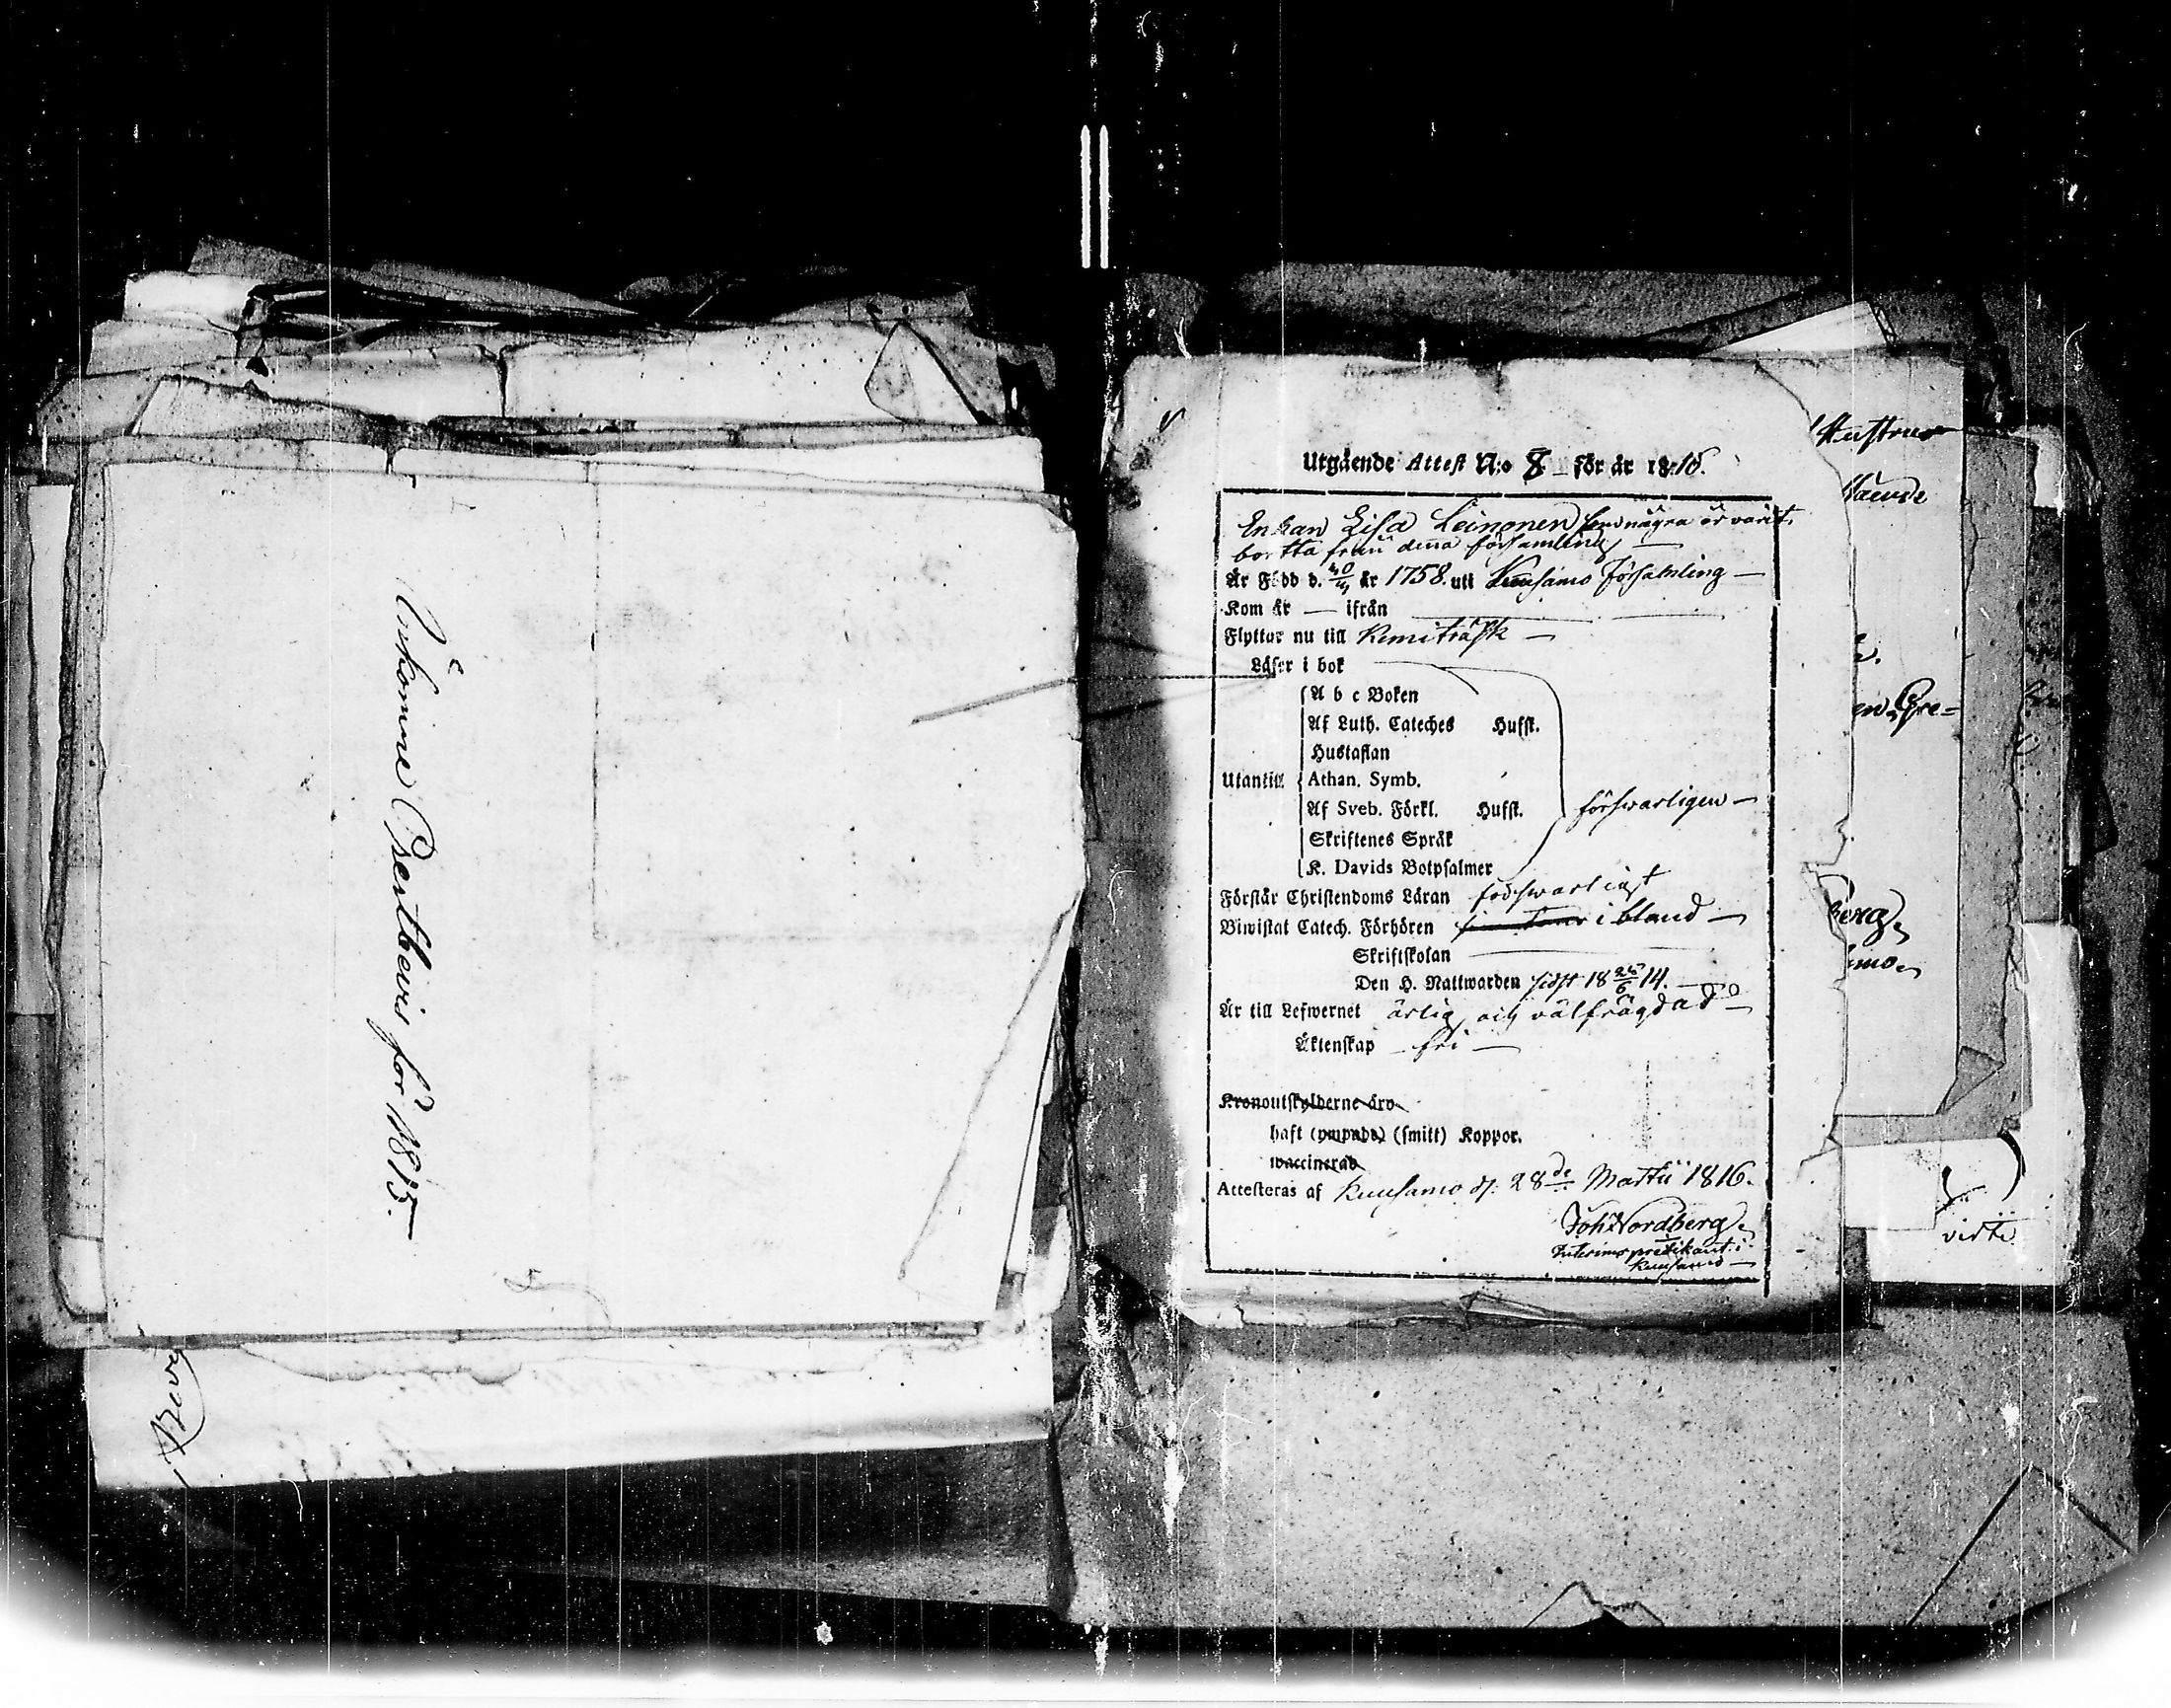 Ankomne Prestbevis för 1815.
Utgående Attest N:o 8 för år 1816.
Enkan Lisa Leinonen som några år varit
bortta från denna församling
Är Född d. 40/4 år 1758. uti Kuusamo Församling
Kom år — ifrån
Flyttar nu till Kemiträsk
Läser i bok
A b c Boken
Af Luth. Cateches Hufst.
Hustaflan
Utantill Athan. Symb.
Af Sveb. Förkl. Hufst. försvarligen
Skriftenes Språk
K. Davids Botpsalmer
Förstår Christendoms Läran försvarligst
Biwistat Catech. Förhören i bland
Skriftskolan
Den H. Nattwarden sidst 18 25/6 14.
Är till Lefwernet ärlig och välfrägdad
Äktenskap fri
Kronoutskylderne äro
haft (ympade) (smitt) Koppor.
waccinerad
Attesteras af Kuusamo d. 28de Martii 1816.
Joh Nordberg
Interimspredikant i
Kuusamo
Hustrun
en Gre=
berg
amo